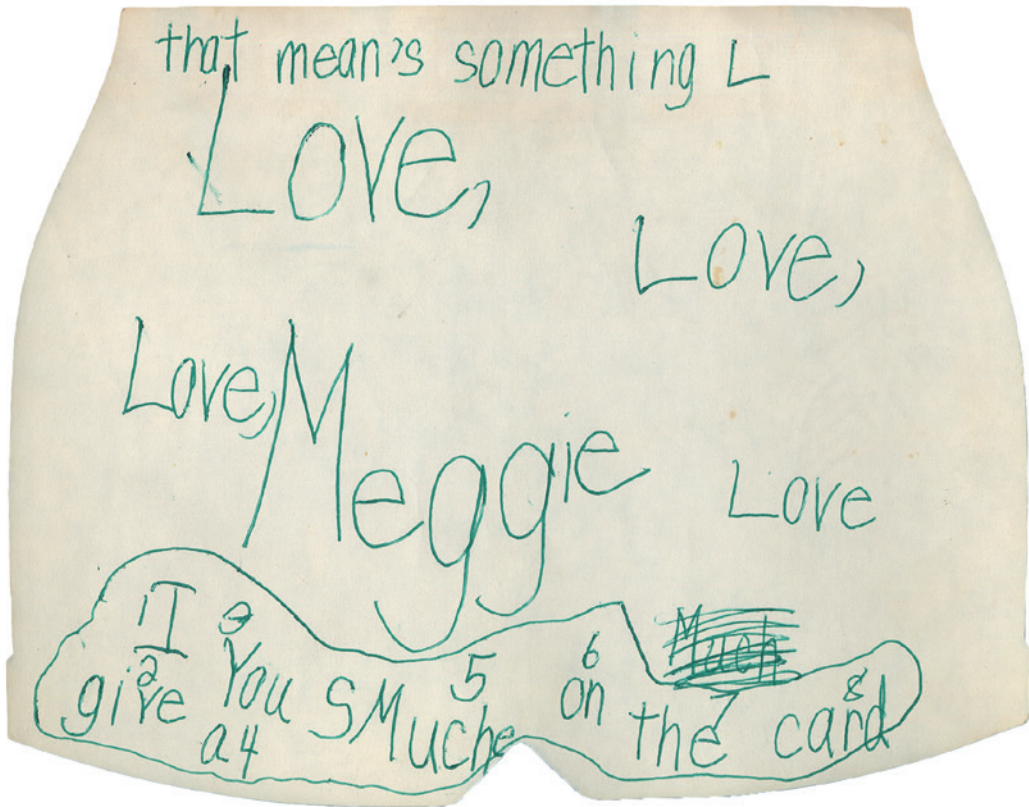 that mean's something L
Love,
Love,
Love, Meggie
Love
Much
1 I give 2 You 3 a 4 SMuche 5 on 6 the 7 card 8